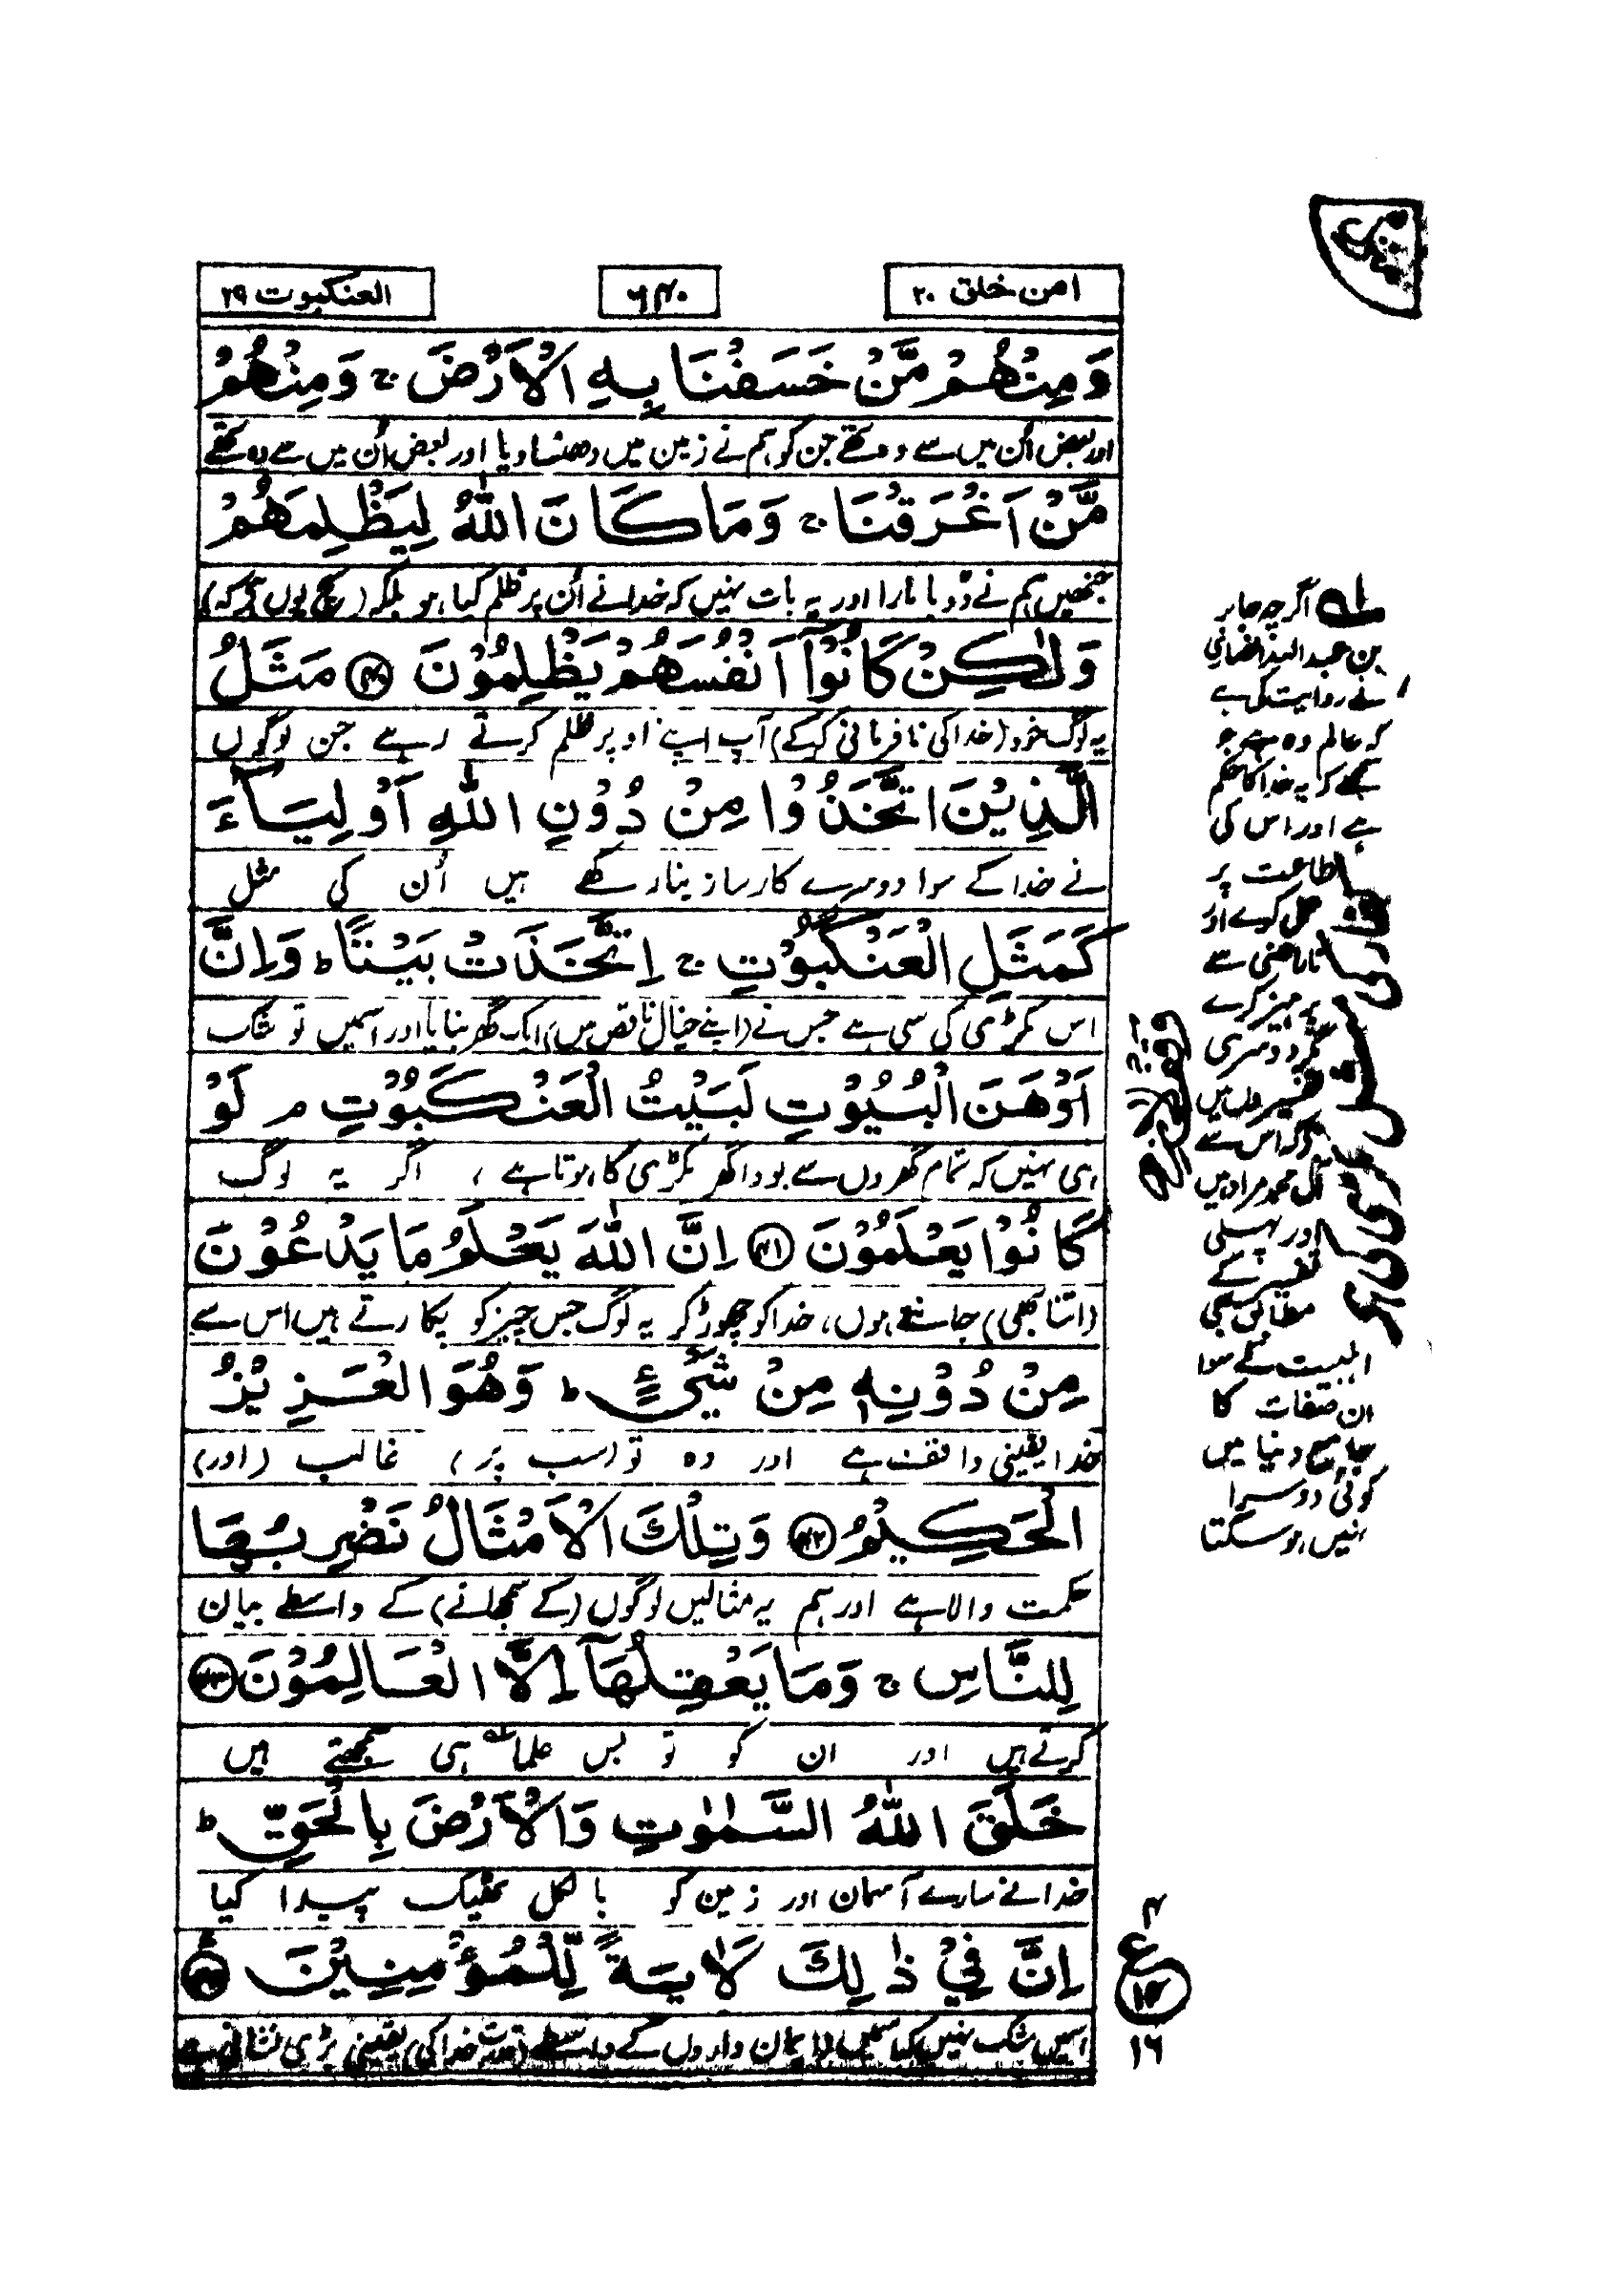 امن خلق ۲۰
۶۴۰
العنکبوت ۲۹
وَمِنْهُمْ مَّنْ خَسَفْنَا بِهِ الْاَرْضَ ۚ وَمِنْهُمْ
اور بعض اُن میں سے وہ تھے جن کو ہم نے زمین میں دھنسا دیا اور بعض اُن میں سے وہ تھے
مَّنْ اَغْرَقْنَا ۚ وَمَا كَانَ اللّٰهُ لِيَظْلِمَهُمْ
جنھیں ہم نے ڈوبا مارا اور یہ بات نہیں کہ خدا نے اُن پر ظلم کیا ہو بلکہ (سچ یوں ہے کہ)
وَلٰكِنْ كَانُوْٓا اَنْفُسَهُمْ يَظْلِمُوْنَ ﴿۴۰﴾ مَثَلُ
یہ لوگ خود (خدا کی نافرمانی کر کے) آپ اپنے اوپر ظلم کرتے رہے جن لوگوں
الَّذِيْنَ اتَّخَذُوْا مِنْ دُوْنِ اللّٰهِ اَوْلِيَآءَ
نے خدا کے سوا دوسرے کارساز بنا رکھے ہیں اُن کی مثل
كَمَثَلِ الْعَنْكَبُوْتِ ۚ اِتَّخَذَتْ بَيْتًا ؕ وَاِنَّ
اس مکڑی کی سی ہے جس نے (اپنے خیال ناقص میں) ایک گھر بنایا اور اسمیں تو شک
اَوْهَنَ الْبُيُوْتِ لَبَيْتُ الْعَنْكَبُوْتِ ۘ لَوْ
ہی نہیں کہ تمام گھروں سے بودا گھر مکڑی کا ہوتا ہے ، اگر یہ لوگ
كَانُوْا يَعْلَمُوْنَ ﴿۴۱﴾ اِنَّ اللّٰهَ يَعْلَمُ مَا يَدْعُوْنَ
(اتنا بھی) جانتے ہوں، خدا کو چھوڑ کر یہ لوگ جس چیز کو پکارتے ہیں اس سے
مِنْ دُوْنِهٖ مِنْ شَيْءٍ ؕ وَهُوَ الْعَزِيْزُ
خدا یقینی واقف ہے اور وہ تو (سب پر) غالب (اور)
الْحَكِيْمُ ﴿۴۲﴾ وَتِلْكَ الْاَمْثَالُ نَضْرِبُهَا
حکمت والا ہے اور ہم یہ مثالیں لوگوں (کے سمجھانے) کے واسطے بیان
لِلنَّاسِ ۚ وَمَا يَعْقِلُهَآ اِلَّا الْعَالِمُوْنَ ﴿۴۳﴾
کرتے ہیں اور ان کو تو بس علما ہی سمجھتے ہیں
خَلَقَ اللّٰهُ السَّمٰوٰتِ وَالْاَرْضَ بِالْحَقِّ ؕ
خدا نے سارے آسمان اور زمین کو بالکل ٹھیک پیدا کیا
اِنَّ فِيْ ذٰلِكَ لَاٰيَةً لِّلْمُؤْمِنِيْنَ ﴿۴۴﴾
اسمیں شک نہیں کہ اسمیں ایمان داروں کے واسطے (قدرت خدا کی) یقینی بڑی نشانی ہے
۴
ع
۱۴
۱۶
اگرچہ جابر
بن عبداللہ انصاری
نے روایت کی ہے
کہ عالم وہ ہے جو
سمجھے کہ یہ خدا کا حکم
ہے اور اس کی
اطاعت پر
عمل کرے اور
ناراضی سے
پرہیز کرے
مگر دوسری
تفسیروں میں
ہے کہ اس سے
آل محمد مراد ہیں
اور پہلی
تفسیر کے
مطابق بھی
اہلبیت کے سوا
ان صفات کا
جامع دنیا میں
کوئی دوسرا
نہیں ہو سکتا